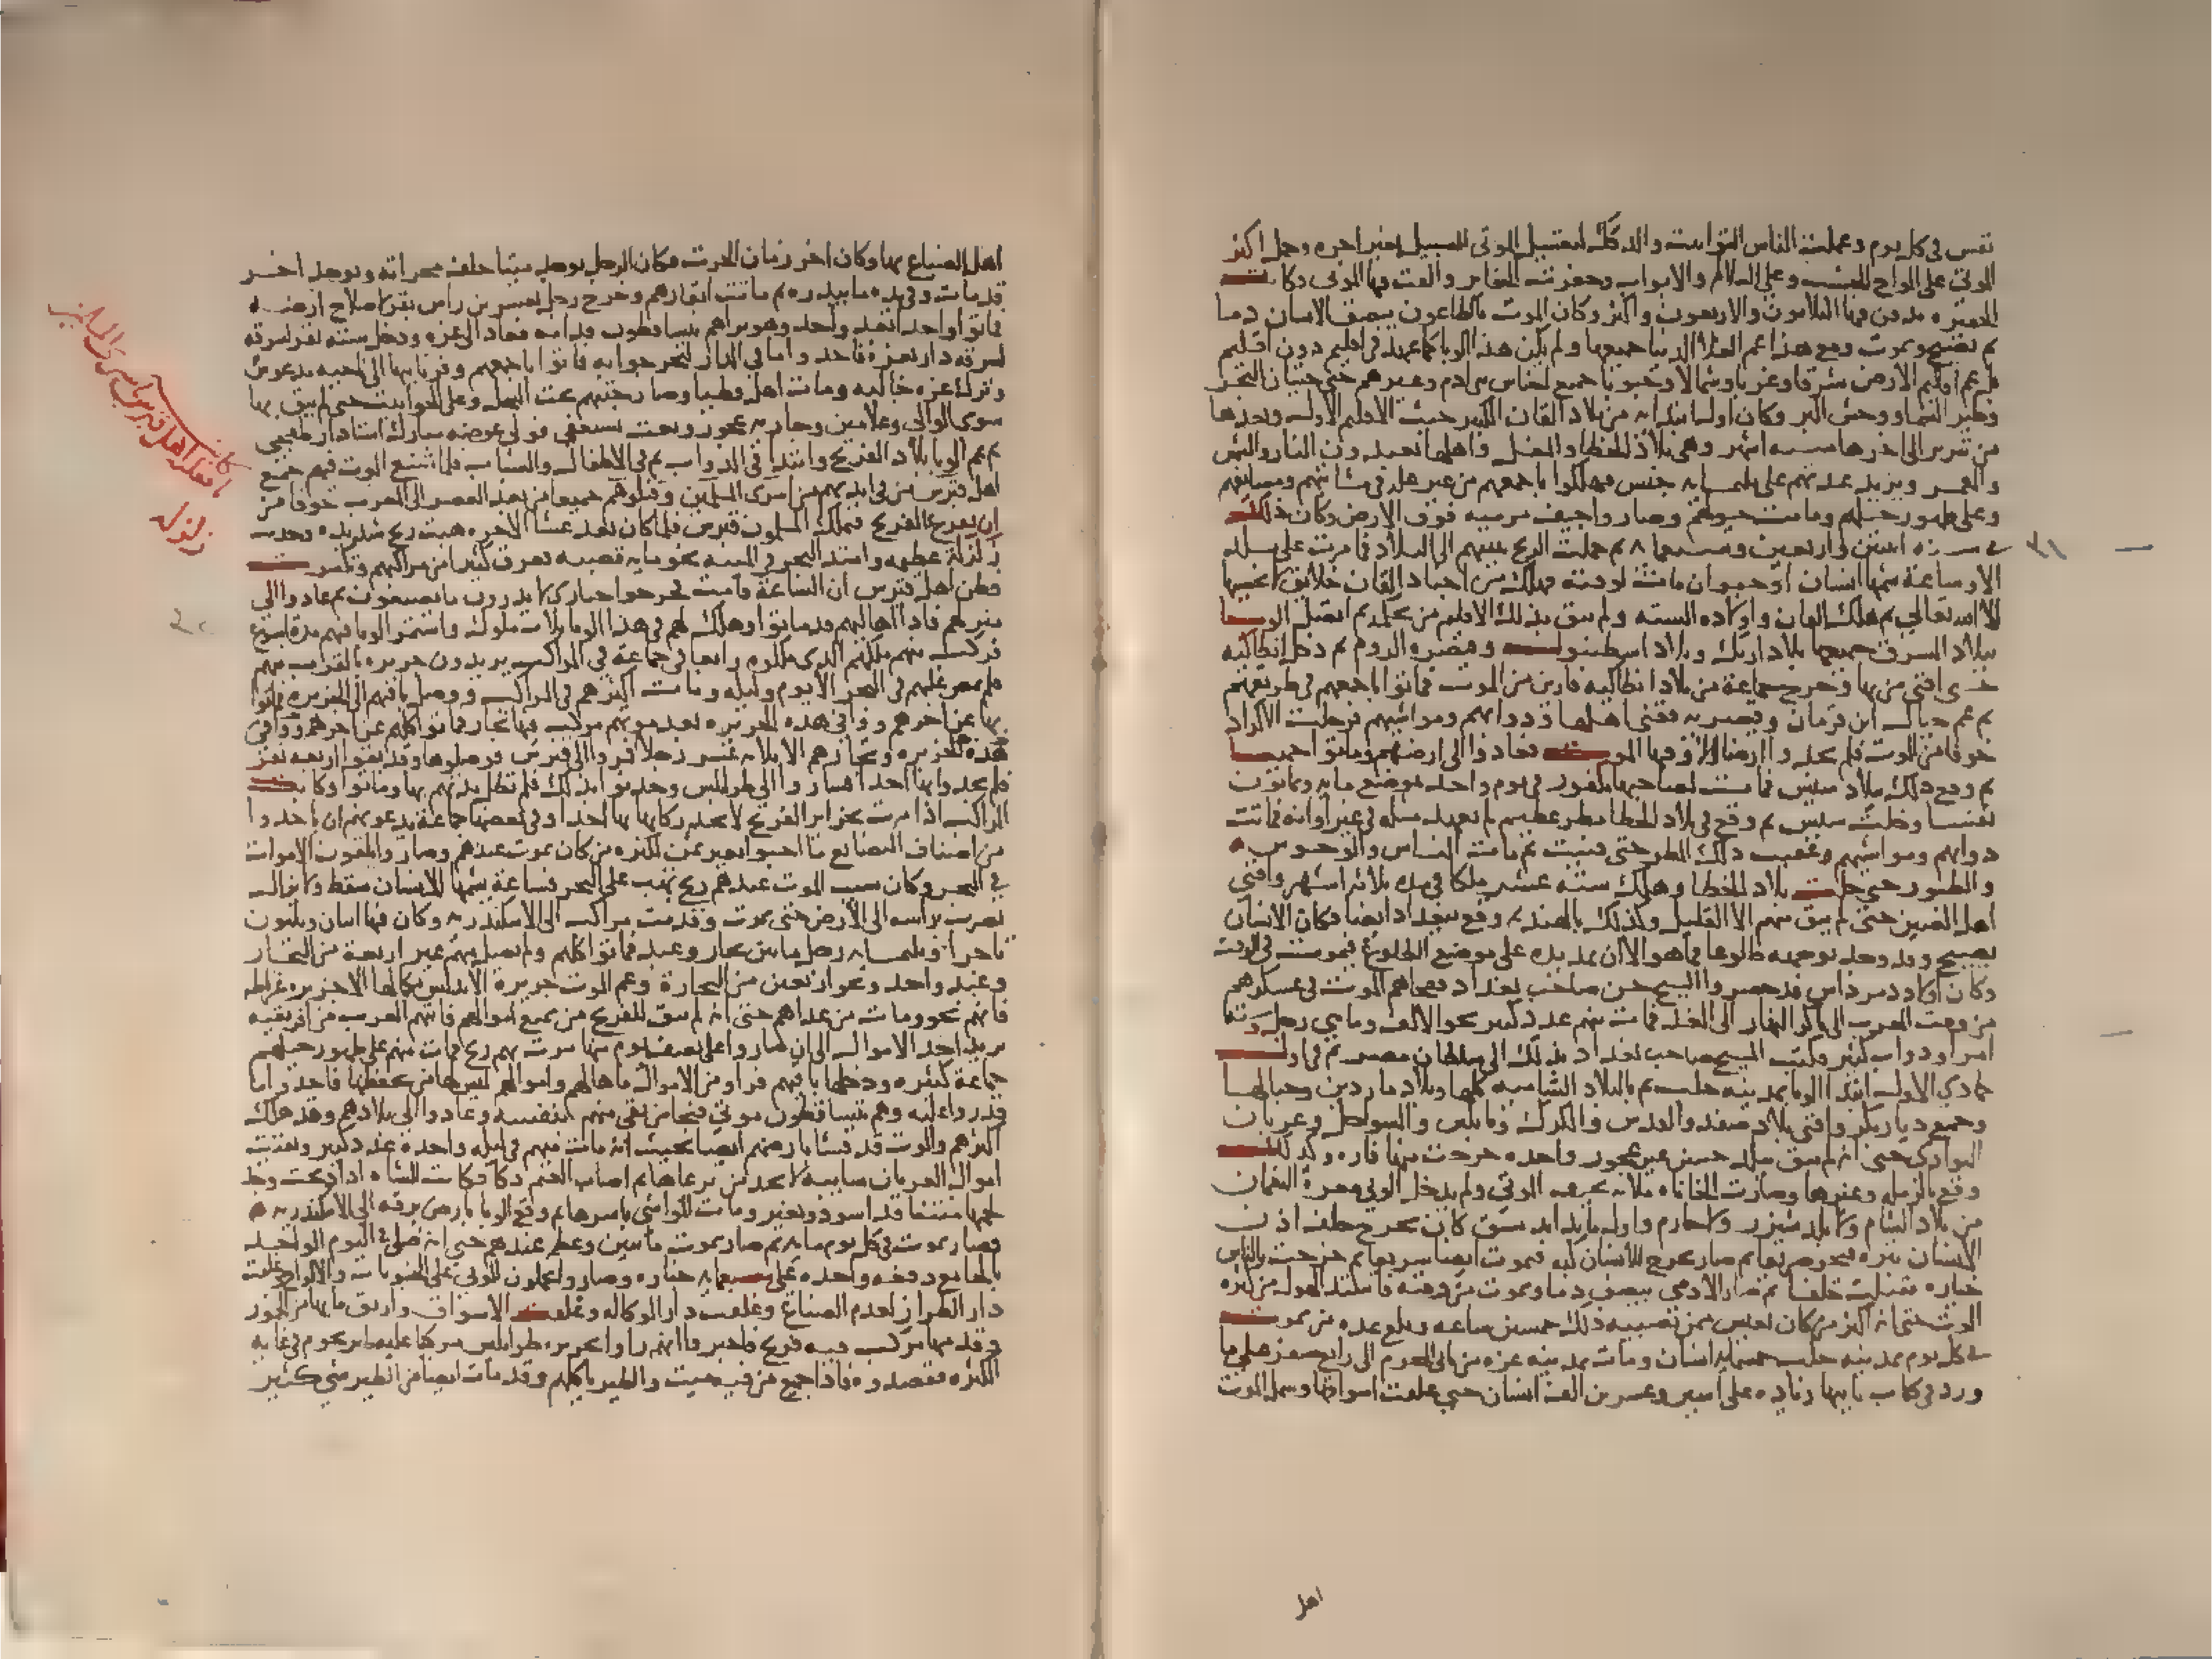 نفس في كل يوم وعملت الناس التوابيت والدكك لتغسيل الموتى للسبيل بغير اجره وحمل اكثر
الموتى على الواح الخشب وعلى السلالم والابواب وحفرت الحفاير والقت فيها الموتى وكانت
الحفيره يدفن فيها الثلاثون والاربعون واكثر وكان الموت بالطاعون يبصق الانسان دما
ثم يصيح ويموت ومع هذا عم الغلا الدنيا جميعها ولم يكن هذا الوبا كما عهد في اقليم دون اقليم
بل عم اقاليم الارض شرقا وغربا وشمالا وجنوبا جميع اجناس بني ادم وغيرهم حتى حيتان البحر
وطير السما ووحش البر وكان اول ابتدايه من بلاد القان الكبير حيث الاقليم الاول وبعدها
من تبريز الى اخرها ستة اشهر وهي بلاد الخطا والمغل واهلها يعبدون النار والشمس
والقمر ويزيد عدتهم على ثلثمايه جنس فهلكوا باجمعهم من غير علة في مشاتيهم ومصايفهم
وعلى ظهور خيلهم وماتت خيولهم وصاروا جيفه مرميه فوق الارض وكان ذلك
في سنة اثنتين واربعين وسبعمايه ثم حملت الريح نتنهم الى البلاد فما مرت على بلد
الا وساعة شمها انسان او حيوان مات لوقته فهلك من اجناد القان خلايق لا يحصيها
الا الله تعالى ثم هلك القان واولاده الستة ولم يبق بذلك الاقليم من يحكم ثم اتصل الوبا
ببلاد الشرق جميعها بلاد ازبك وبلاد اسطنبول وقيصرية الروم ثم دخل انطاكيه
حتى افنى من بها وخرج جماعة من بلاد انطاكيه فارين من الموت فماتوا باجمعهم في طريقهم
ثم عم جبال ابن قرمان وقيصرية ففني اهلها ودوابهم ومواشيهم فرحلت الاكراد
خوفا من الموت فلم يجدوا ارضا الا وفيها الموت فعادوا الى ارضهم وماتوا جميعا
ثم وقع ذلك ببلاد سيس فمات لصاحبها تكفور في يوم واحد بموضع مايه وثمانون
نفسا وخلت سيس ثم وقع في بلاد الخطا مطر عظيم لم يعهد مثله في غير اوانه فماتت
دوابهم ومواشيهم وعقيب ذلك المطر حتى فنيت ثم مات الناس والوحوش
والطيور حتى خلت بلاد الخطا وهلك ستة عشر ملكا في مدة ثلاثة اشهر وافنى
اهل الصين حتى لم يبق منهم الا القليل وكذلك بالهند ثم وقع ببغداد ايضا فكان الانسان
يصبح وقد وجد بوجهه طلوعا فما هو الا ان يمد يده على موضع الطلوع فيموت في الوقت
وكان اولاد دمرداش قد حصروا الشيخ حسن صاحب بغداد ففجاهم الموت في عسكرهم
من وقت المغرب الى باكر النهار الى الغد فمات منهم عدد كبير نحو الالف ومايتي رجل وستة
امرا ودواب كثير فكتب الشيخ صاحب بغداد بذلك الى سلطان مصر ثم في اول
جمادى الاولى ابتدا الوبا بمدينه حلب ثم بالبلاد الشاميه كلها وبلاد ماردين وجبالها
وجميع ديار بكر وافنى بلاد صفد والقدس والكرك ونابلس والسواحل وعربان
البوادي حتى انه لم يبق ببلد جنين غير عجوز واحده خرجت منها فاره وكذلك
وقع بالرمله وغيرها وصارت الخانات ملانه بجيف الموتى ولم يدخل الوبا معرة النعمان
من بلاد الشام ولا بلد شيزر ولا حارم واول ما بدا بدمشق كان يخرج خلف اذن
الانسان بثره فيخر صريعا ثم صار يخرج للانسان كبه فيموت ايضا سريعا ثم خرجت بالناس
خياره فقتلت خلقا ثم صار الادمي يبصق دما ويموت من وقته فاشتد الهول من كثرة
الموت حتى انه اكثر من كان يعيش ممن يصيبه ذلك خمسين ساعه وبلغ عده من يموت
في كل يوم بمدينه حلب خمسمايه انسان ومات بمدينه غزه من ثاني المحرم الى رابع صفر على ما
ورد في كتاب نايبها زياده على اثنين وعشرين الف انسان حتى غلقت اسواقها وشمل الموت
اهل
اهل الضياع بها وكان اخر زمان الحرث فكان الرجل يوجد ميتا خلف محراثه ويوجد اخر
قد مات وفي يده ما يبذره ثم ماتت ابقارهم وخرج رجل بعشرين راس بقر لاصلاح ارضه
فماتوا واحدا بعد واحد وهو يراهم يتساقطون قدامه فعاد الى غزه ودخل ستة نفر لسرقه
لسرقه دار بغزة فاخذوا ما في الدار ليخرجوا به فماتوا باجمعهم وفر نايبها الى ناحيه بدعرش
وترك غزه خاليه ومات اهل قطيا وصارت جثثهم تحت النخل وعلى الحوانيت حتى لم يبق بها
سوى الوالي وغلامين وجاريه عجوز وبعث يستعفي فولي عوضه مبارك استادار طغجي
ثم عم الوبا بلاد الفرنج وابتدا في الدواب ثم في الاطفال والشباب فلما شنع الموت فيهم جمع
اهل قبرس من في ايديهم من اسرى المسلمين وقتلوهم جميعا من بعد العصر الى المغرب خوفا من
ان يفرغ الفرنج فتملك المسلمون قبرس فلما كان بعد عشا الاخره هبت ريح شديده وحدثت
زلزلة عظيمه وامتد البحر في المينه نحو مايه قصبه فغرق كثير من مراكبهم وتكسرت
فظن اهل قبرس ان الساعة قامت فخرجوا حيارى لا يدرون ما يصنعون ثم عادوا الى
منازلهم فاذا اهاليهم قد ماتوا وهلك لهم في هذا الوبا ثلاث ملوك واستمر الوبا فيهم مدة اسبوع
فركب منهم ملكهم الذي ملكوه رابعا في جماعة في المراكب يريدون جزيره بالقرب منهم
فلم يمض عليهم في البحر الا يوم وليله ومات اكثرهم في المراكب ووصل باقيهم الى الجزيره فماتوا
بها عن اخرهم ووافى هذه الجزيره بعد موتهم مركب فيها تجار فماتوا كلهم عن اخرهم ووافى
هذه الجزيره وتجارهم الا ثلاثة عشر رجلا فروا الى قبرس فوصلوها وقد بقوا اربعه نفر
فلم يجدوا بها احدا فساروا الى طرابلس وحدثوا بذلك فلم تطل مدتهم بها وماتوا وكانت
المراكب اذا مرت بجزاير الفرنج لا تجد ركابها بها احدا وفي بعضها جماعة يدعوهم ان ياخذوا
من اصناف البضايع ما احبوا بغير ثمن لكثرة من كان يموت عندهم وصاروا يلقون الاموات
في البحر وكان سبب الموت عندهم ريح تهب على البحر فساعة يشمها الانسان سقط ولا يزال
يضرب براسه الى الارض حتى يموت وقدمت مراكب الى الاسكندريه وكان فيها اثنان وثلثون
تاجرا وثلثمايه رجل ما بين بحار وعبد فماتوا كلهم ولم يصل منهم غير اربعة من التجار
وعبد واحد ونحو اربعين من البحارة وعم الموت جزيرة الاندلس بكمالها الا جزيره غرناطه
فانهم نجوا ومات من عداهم حتى انه لم يبق للفرنج من يمنع اموالهم فاتتهم العرب من افريقيه
تريد اخذ الاموال الى ان صاروا على نصف يوم منها مرت بهم ريح فمات منهم على ظهور خيلهم
جماعة كثيره ودخلها باقيهم فراوا من الاموال ما هالهم واموالهم ليس لها من يحفظها فاخذوا ما
قدروا عليه وهم يتساقطون موتى فنجا من بقي منهم بنفسه وعادوا الى بلادهم وقد هلك
اكثرهم والموت قد فشا بارضهم ايضا بحيث انه مات منهم في ليله واحدة عدد كبير وبقيت
اموال العربان سايبه لا تجد من يرعاها ثم اصاب الغنم داء فكانت الشاه اذا ذبحت وجد
لحمها منتنا قد اسود وتغير وماتت المواشي باسرها ثم وقع الوبا بارض برقه الى الاسكندريه
فصار يموت في كل يوم مايه ثم صار يموت مايتين وعظم عندهم حتى انه صلي في اليوم الواحد
بالجامع دفعه واحده على سبعمايه جنازه وصاروا يحملون الموتى على الجنويات والالواح وغلقت
دار الطراز لعدم الصناع وغلقت دار الوكاله وغلقت الاسواق واريق ما بها من الخمور
وقدمها مركب فيه فرنج فاخبروا انهم راوا بجزيره طرابلس مركبا عليه طير يحوم في غايه
الكثره فقصدوه فاذا جميع من فيه ميت والطير ياكلهم وقد مات ايضا من الطير شي كثير
زلزله